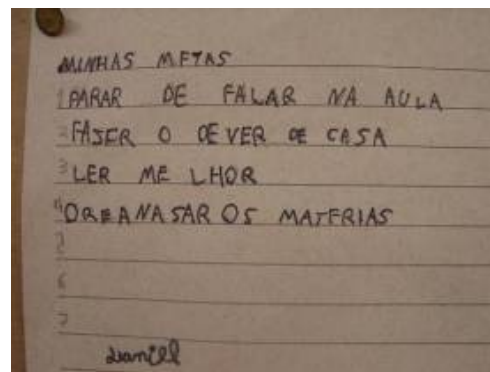 MINHAS METAS
1 PARAR DE FALAR NA AULA
2 FASER O DEVER DE CASA
3 LER ME LHOR
4 OREANASAR OS MATERIAS
5
6
7
Daniel